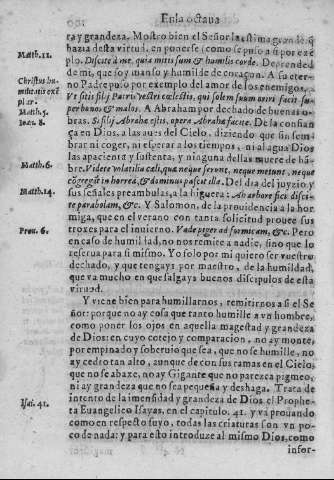 En la octaua
ra y grandeza. Mostro bien el Señor la estima grande q̃
hazia desta virtud, en ponerse (como se puso a si) por exẽ
Matth. 11.
plo. Discite à me, quia mitis sum & humilis corde. Depreended
de mi, que soy manso y humilde de coraçon. A su eter-
Christus hu
no Padre puso por exemplo del amor de los enemigos.
militatis exẽ
Vt sitis filij Patris vestri cælestis, qui solem suum oriri facit su-
plar.
per bonos & malos. A Abraham por dechado de buenas o-
Matth. 5.
Ioan. 8.
bras. Si filij Abrahæ estis, opera Abrahæ facite. De la confian
ça en Dios, a las aues del Cielo, diziendo que sin sem-
brar ni coger, ni esperar a los tiempos, ni al agua Dios
las apacienta y sustenta, y ninguna dellas muere de hã-
Matth. 6.
bre. Videte volatilia cæli, quæ neque serunt, neque metunt, neque
cõgregãt in horrea, & dominus pascit illa. Del dia del juyzio y
Matth. 24.
sus señales preambulas, a la higuera: Ab arbore fici disci-
te parabolam, &c. Y Salomon, de la prouidencia a la hor
miga, que en el verano con tanta solicitud prouee sus
Prou. 6.
troxes para el inuierno. Vade piger ad formicam, &c. Pero
en caso de humildad, no nos remite a nadie, sino que lo
reserua para si mismo. Yo solo por mi quiero ser vuestro
dechado, y que tengays por maestro, de la humildad,
que va mucho en que salgays buenos discipulos de esta
virtud.
Y viene bien para humillarnos, remitirnos a si el Se
ñor: porque no ay cosa que tanto humille a vn hombre,
como poner los ojos en aquella magestad y grandeza
de Dios: en cuyo cotejo y comparacion, no ay monte,
por empinado y soberuio que sea, que no se humille, no
ay cedro tan alto, aunque de con sus ramas en el Cielo,
que no se abaxe, no ay Gigante que no parezca pigmeo,
ni ay grandeza que no sea pequeña y deshaga. Trata de
intento de la imensidad y grandeza de Dios el Prophe
Isai. 41.
ta Euangelico Isayas, en el capitulo. 41. y va prouando
como en respecto suyo, todas las criaturas son vn po
co de nada: y para esto introduze al mismo Dios, como
infor-